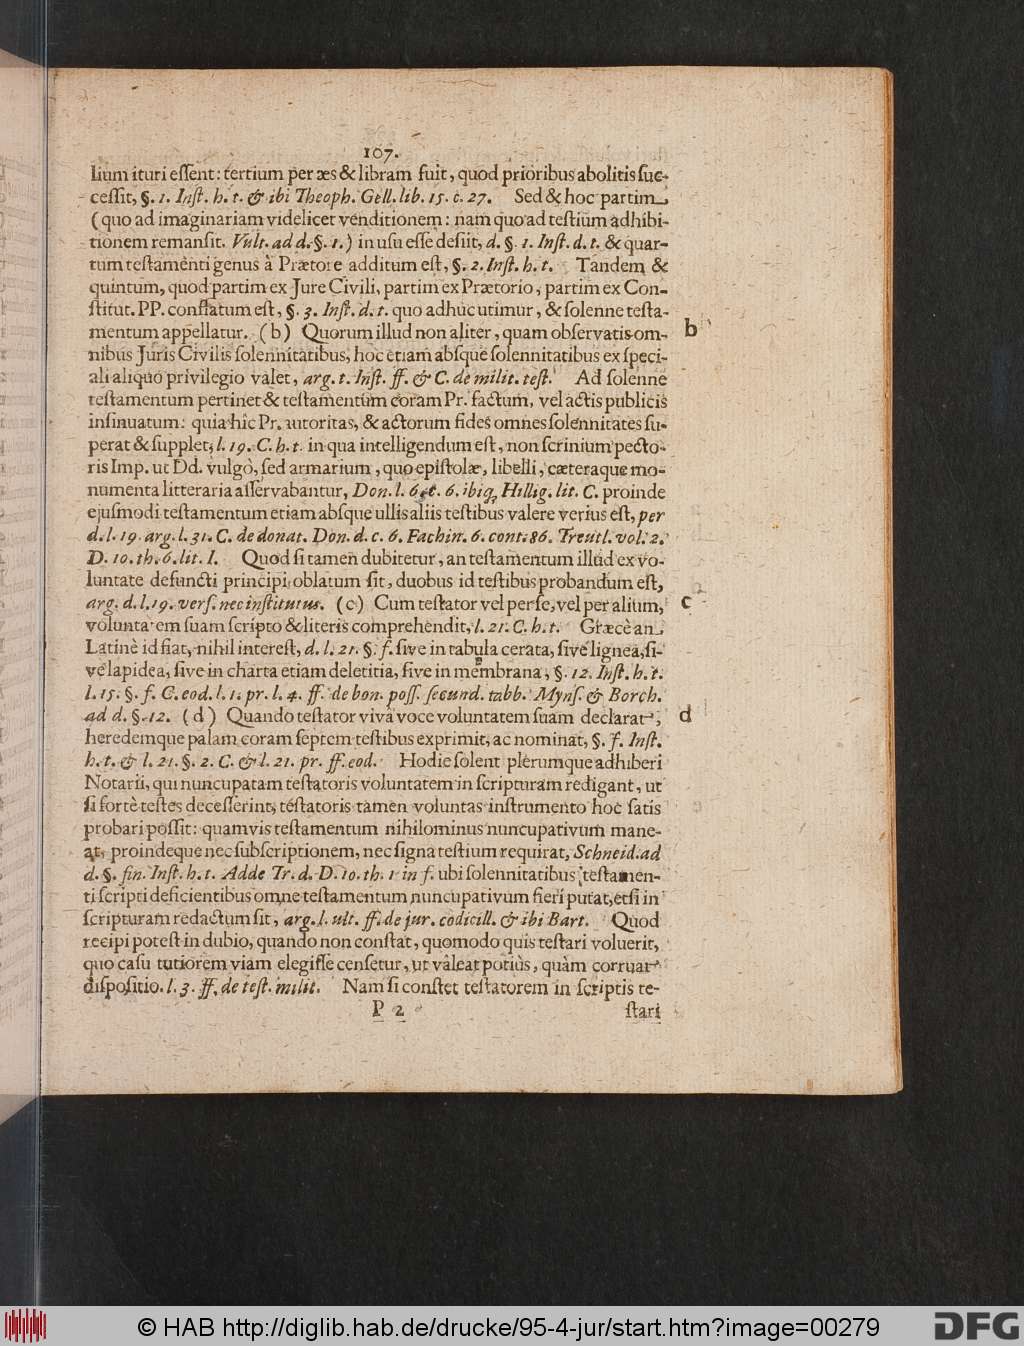 107.
lium ituri essent: tertium per æs & libram fuit, quod prioribus abolitis suc-
cessit, §. 1. Inst. h. t. & ibi Theoph. Gell. lib. 15. c. 27. Sed & hoc partim
(quo ad imaginariam videlicet venditionem: nam quo ad testium adhibi-
tionem remansit. Vult. ad d. §. 1.) in usu esse desiit, d. §. 1. Inst. d. t. & quar-
tum testamenti genus à Prætore additum est, §. 2. Inst. h. t. Tandem &
quintum, quod partim ex Jure Civili, partim ex Prætorio, partim ex Con-
stitut. PP. conflatum est, §. 3. Inst. d. t. quo adhuc utimur, & solenne testa-
mentum appellatur. (b) Quorum illud non aliter, quam observatis om- b
nibus Juris Civilis solennitatibus, hoc etiam absque solennitatibus ex speci-
ali aliquo privilegio valet, arg. t. Inst. ff. & C. de milit. test. Ad solenne
testamentum pertinet & testamentum coram Pr. factum, vel actis publicis
insinuatum: quia hic Pr. autoritas, & actorum fides omnes solennitates su-
perat & supplet, l. 19. C. h. t. in qua intelligendum est, non scrinium pecto-
ris Imp. ut Dd. vulgò, sed armarium, quo epistolæ, libelli, cæteraque mo-
numenta litteraria asservabantur, Don. l. 6. c. 6. ibiq; Hillig. lit. C. proinde
ejusmodi testamentum etiam absque ullis aliis testibus valere verius est, per
d. l. 19. arg. l. 31. C. de donat. Don. d. c. 6. Fachin. 6. cont. 86. Treutl. vol. 2.
D. 10. th. 6. lit. I. Quod si tamen dubitetur, an testamentum illud ex vo-
luntate defuncti principi oblatum sit, duobus id testibus probandum est,
arg. d. l. 19. vers. nec institutus. (c) Cum testator vel per se, vel per alium, c
voluntatem suam scripto & literis comprehendit, l. 21. C. h. t. Græcè an
Latinè id fiat, nihil interest, d. l. 21. §. f. sive in tabula cerata, sive lignea, si-
ve lapidea, sive in charta etiam deletitia, sive in membrana, §. 12. Inst. h. t.
l. 15. §. f. C. eod. l. 1. pr. l. 4. ff. de bon. poss. secund. tabb. Myns. & Borch.
ad d. §. 12. (d) Quando testator viva voce voluntatem suam declarat, d
heredemque palam coram septem testibus exprimit, ac nominat, §. f. Inst.
h. t. & l. 21. §. 2. C. & l. 21. pr. ff. eod. Hodie solent plerumque adhiberi
Notarii, qui nuncupatam testatoris voluntatem in scripturam redigant, ut
si fortè testes decesserint, testatoris tamen voluntas instrumento hoc satis
probari possit: quamvis testamentum nihilominus nuncupativum mane-
at, proindeque nec subscriptionem, nec signa testium requirat, Schneid. ad
d. §. fin. Inst. h. t. Adde Tr. d. D. 10. th. 1. in f. ubi solennitatibus testamen-
ti scripti deficientibus omne testamentum nuncupativum fieri putat, etsi in
scripturam redactum sit, arg. l. ult. ff. de jur. codicill. & ibi Bart. Quod
recipi potest in dubio, quando non constat, quomodo quis testari voluerit,
quo casu tutiorem viam elegisse censetur, ut valeat potiùs, quàm corruat
dispositio. l. 3. ff. de test. milit. Nam si constet testatorem in scriptis te-
P 2 stari
© HAB http://diglib.hab.de/drucke/95-4-jur/start.htm?image=00279
DFG